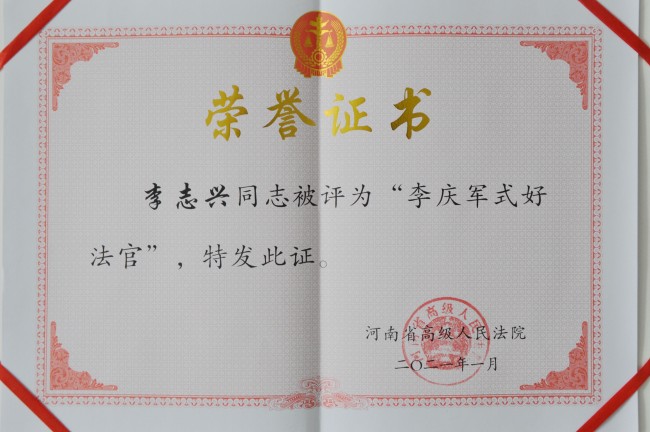 荣誉证书
李志兴同志被评为“李庆军式好
法官”，特发此证。
河南省高级人民法院
二〇二一年一月